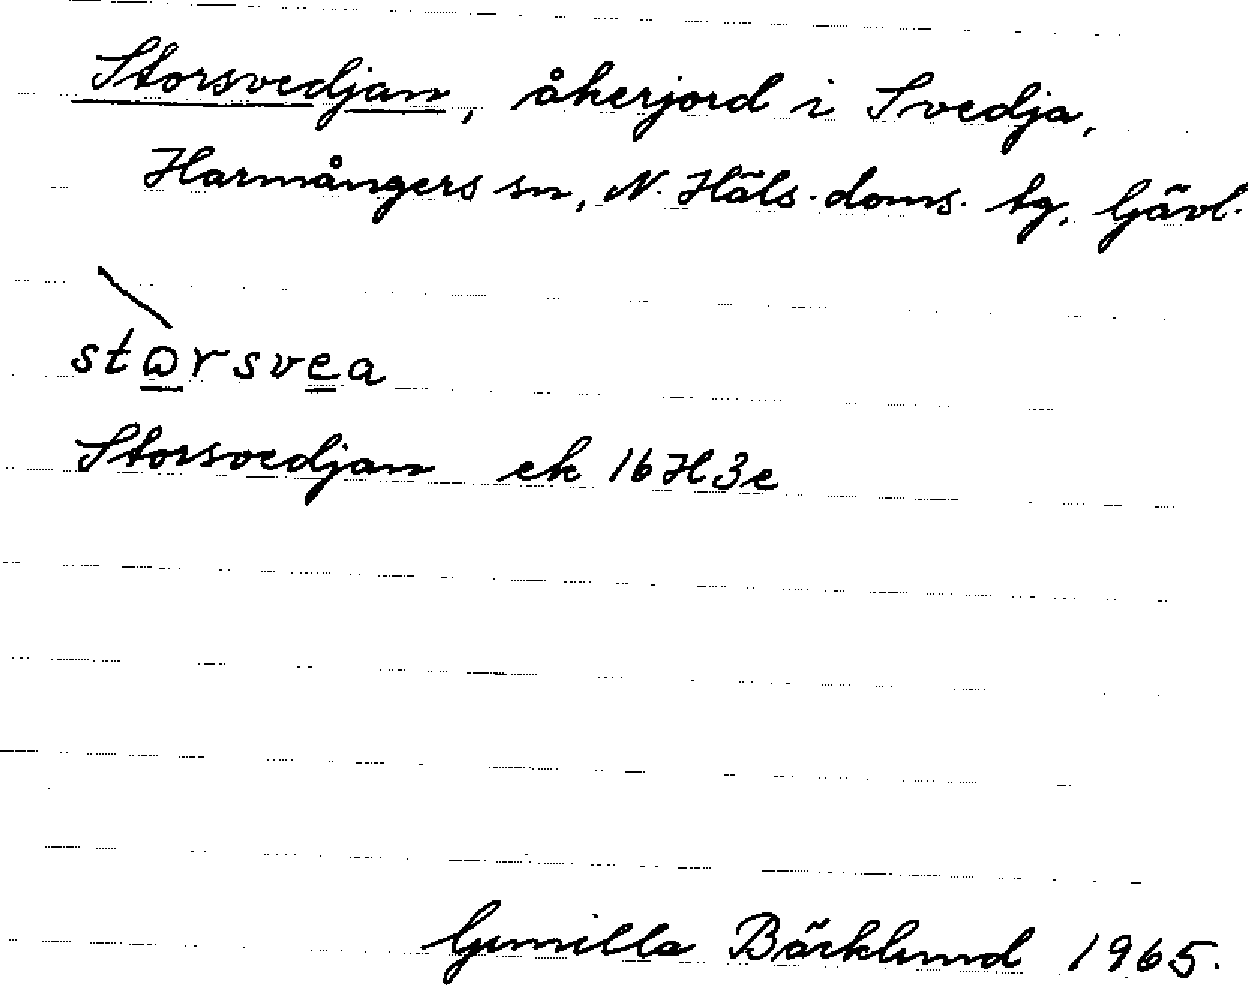 Storsvedjan, åkerjord i Svedja,
Harmångers sn, N. Häls. doms. tg, Gävl.
stωrsvea
Storsvedjan ek 16H3e
Gunilla Bäcklund 1965.